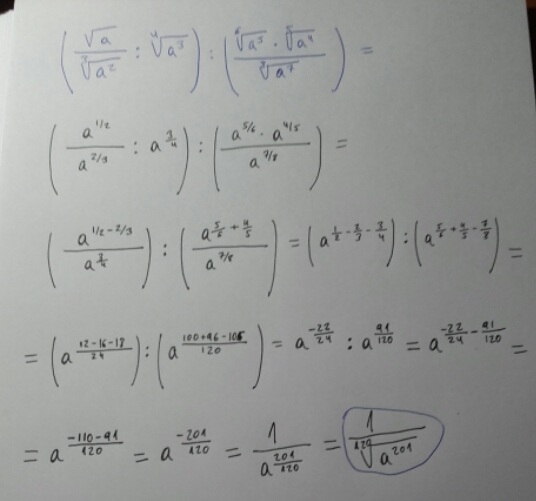 (√a / ∛a² : ∜a³) : (⁶√a⁵ · ⁵√a⁴ / ⁸√a⁷) =
(a^1/2 / a^2/3 : a^3/4) : (a^5/6 · a^4/5 / a^7/8) =
(a^1/2-2/3 / a^3/4) : (a^5/6+4/5 / a^7/8) = (a^1/2-2/3-3/4) : (a^5/6+4/5-7/8) =
= (a^12-16-18/24) : (a^100+96-105/120) = a^-22/24 : a^91/120 = a^-22/24-91/120 =
= a^-110-91/120 = a^-201/120 = 1 / a^201/120 = 1 / ¹²⁰√a²⁰¹